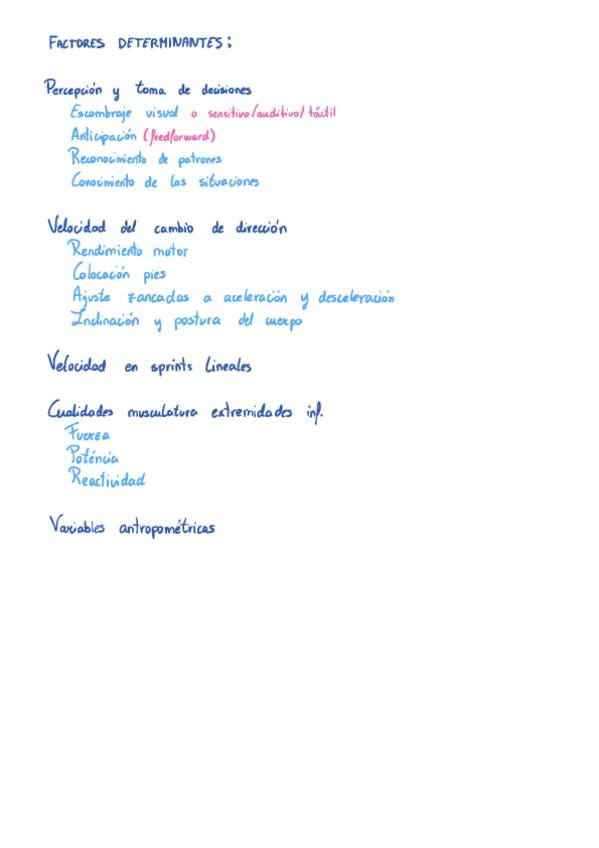 FACTORES DETERMINANTES:
Percepción y toma de decisiones
Escombraje visual o sensitivo/auditivo/táctil
Anticipación (feedforward)
Reconocimiento de patrones
Conocimiento de las situaciones
Velocidad del cambio de dirección
Rendimiento motor
Colocación pies
Ajuste zancadas a aceleración y desceleración
Inclinación y postura del cuerpo
Velocidad en sprints lineales
Cualidades musculatura extremidades inf.
Fuerza
Poténcia
Reactividad
Variables antropométricas